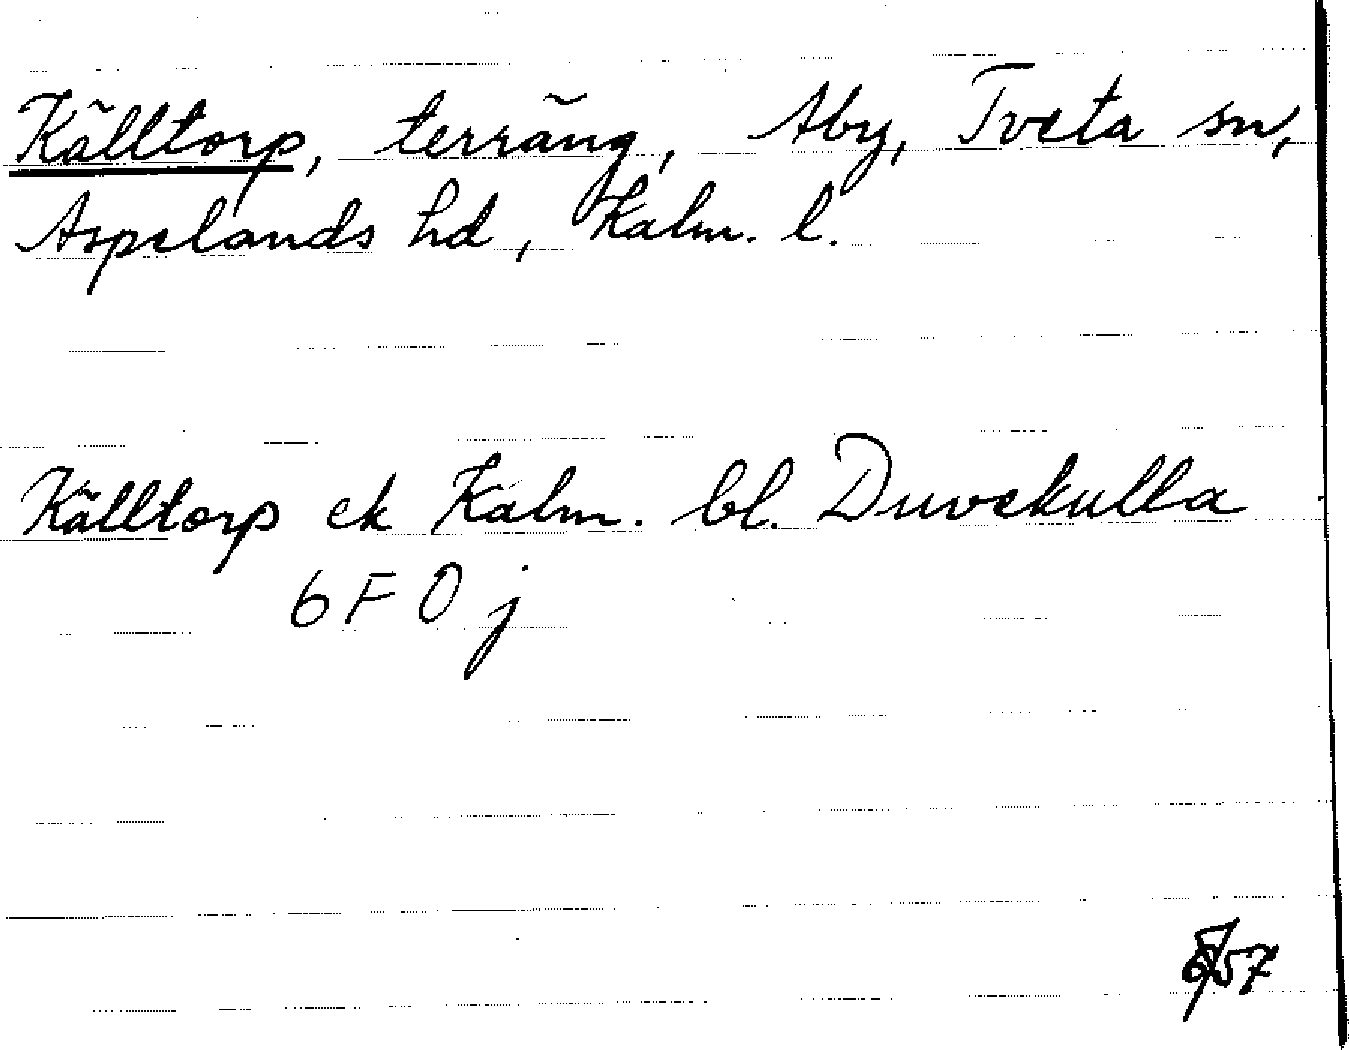 Källtorp, terräng, Åby, Tveta sn,
Aspelands hd, Kalm. l.
Källtorp ek Kalm. bl. Duvekulla
6 F 0 j